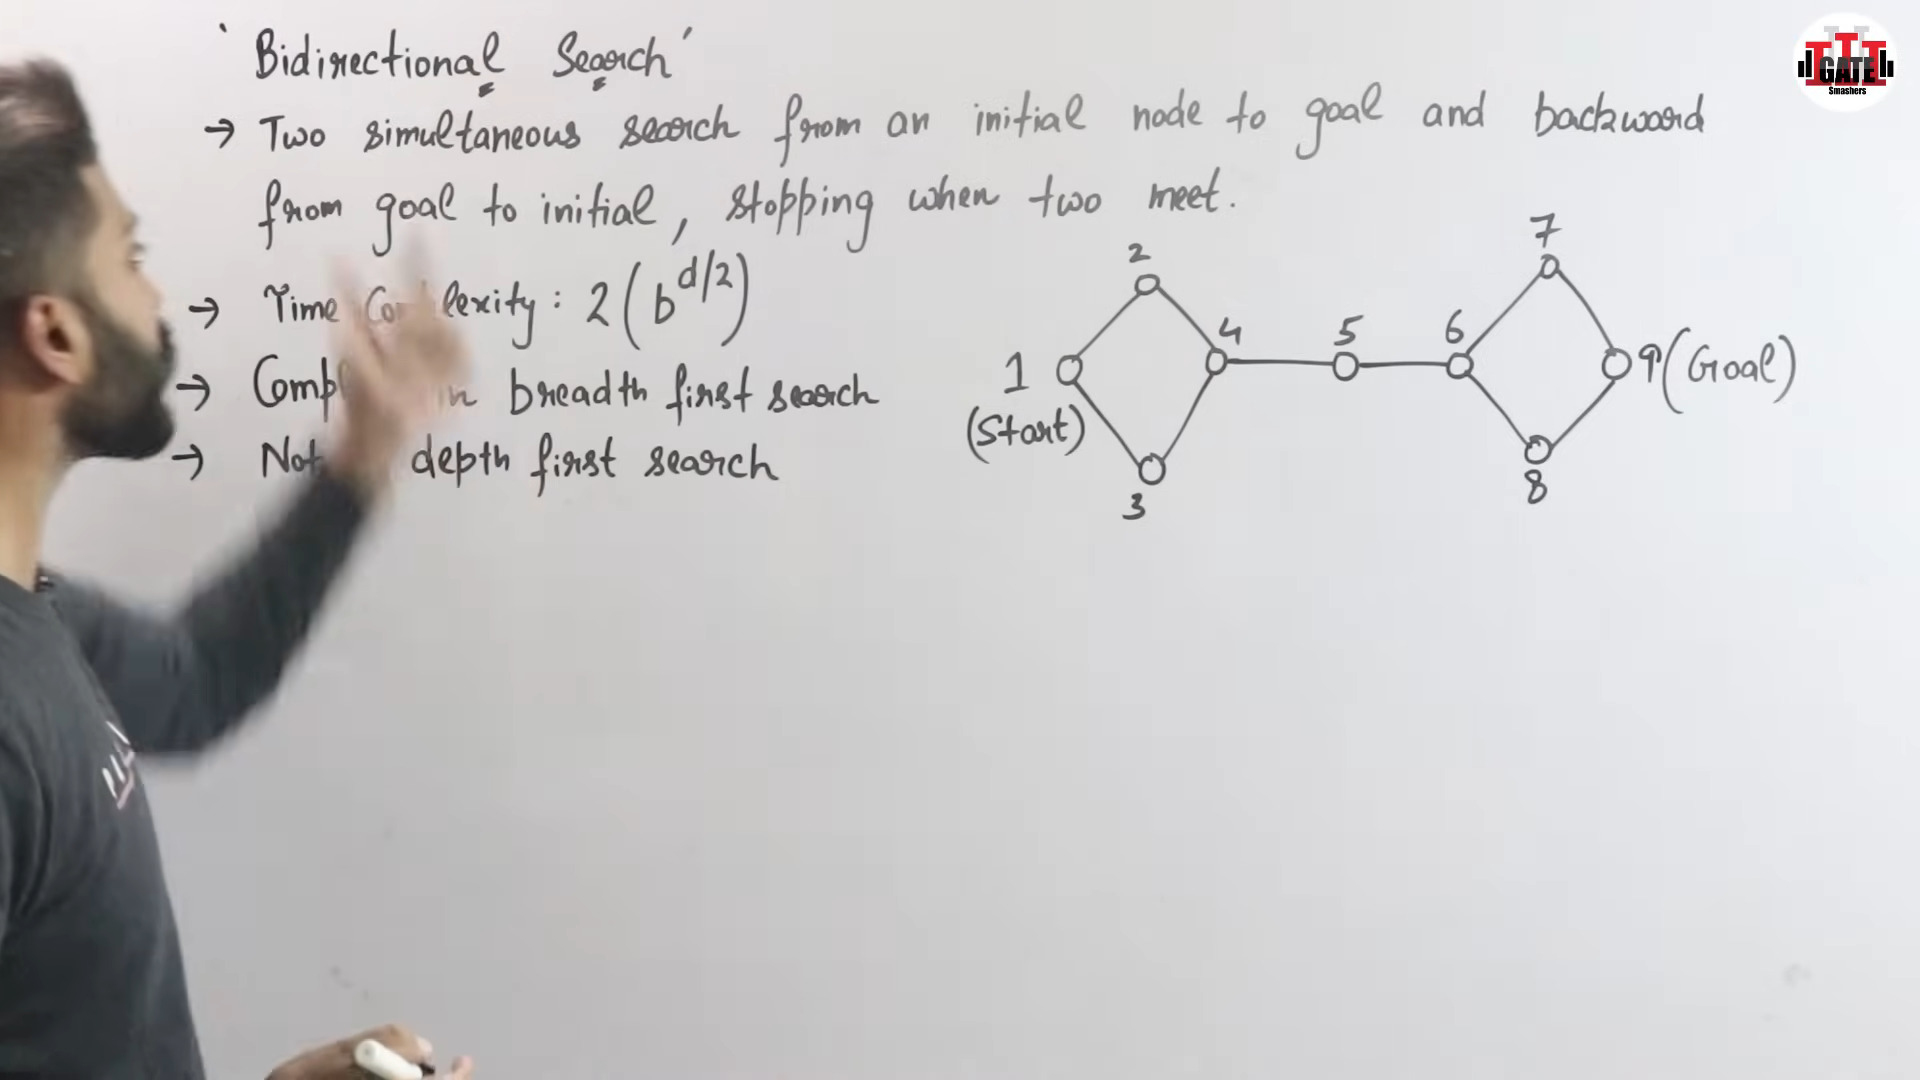 'Bidirectional Search'
→ Two simultaneous search from an initial node to goal and backward
from goal to initial, stopping when two meet.
→ Time Complexity: 2(b^d/2)
→ in breadth first search
→ Not depth first search
1
(Start)
2
3
4
5
6
7
8
9(Goal)
GATE
Smashers